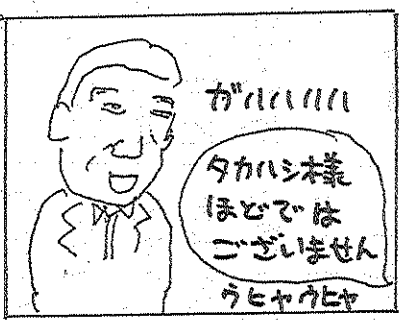 ガハハハハ
タカハシ様
ほどでは
ございません
ウヒャウヒャ